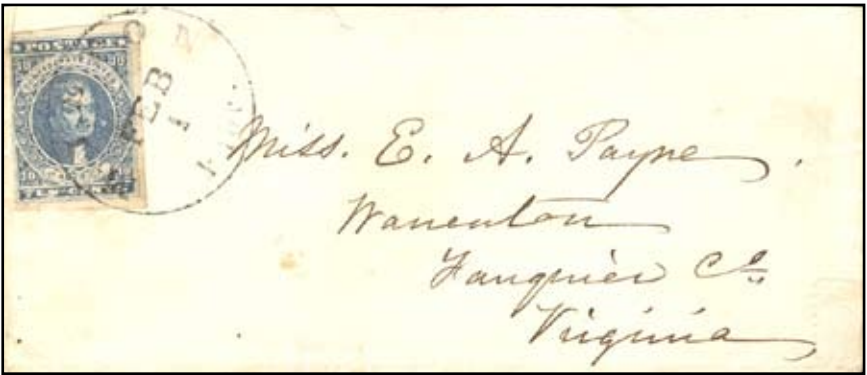 POSTAGE
10 10
TEN CENTS
FEB
1
Miss. E. A. Payne.
Warrenton
Fauquier Co
Virginia